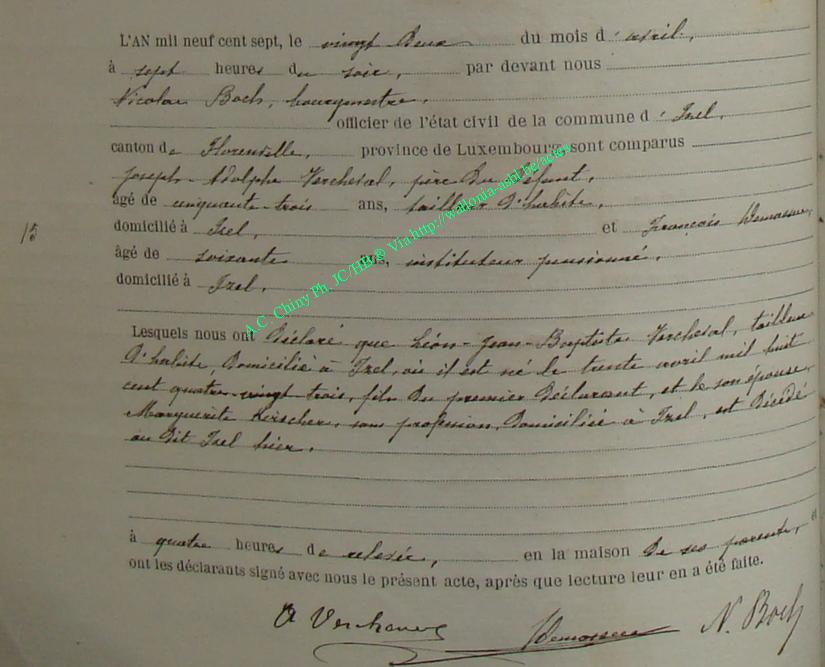 L'AN mil neuf cent sept, le vingt deux du mois d'avril,
à sept heures du soir, par devant nous
Nicolas Boch, bourgmestre,
officier de l'état civil de la commune d'Izel,
canton de Florenville, province de Luxembourg, sont comparus
Joseph-Adolphe Vercheval, père du défunt,
âgé de cinquante trois ans, tailleur d'habits,
domicilié à Izel, et François
15
âgé de soixante ans, instituteur pensionné,
domicilié à Izel,
Lesquels nous ont déclaré que Léon-Jean-Baptiste Vercheval, tailleur
d'habits, domicilié à Izel, où il est né le trente avril mil huit
cent quatre-vingt trois, fils du premier déclarant, et de son épouse,
Marguerite, sans profession, domiciliée à Izel, est décédé
au dit Izel hier,
à quatre heures de relevée, en la maison de ses parents, et
ont les déclarants signé avec nous le présent acte, après que lecture leur en a été faite.
N. Boch
A.C. Chiny Ph. JC/HB® Via http://wallonia-asbl.be/actes